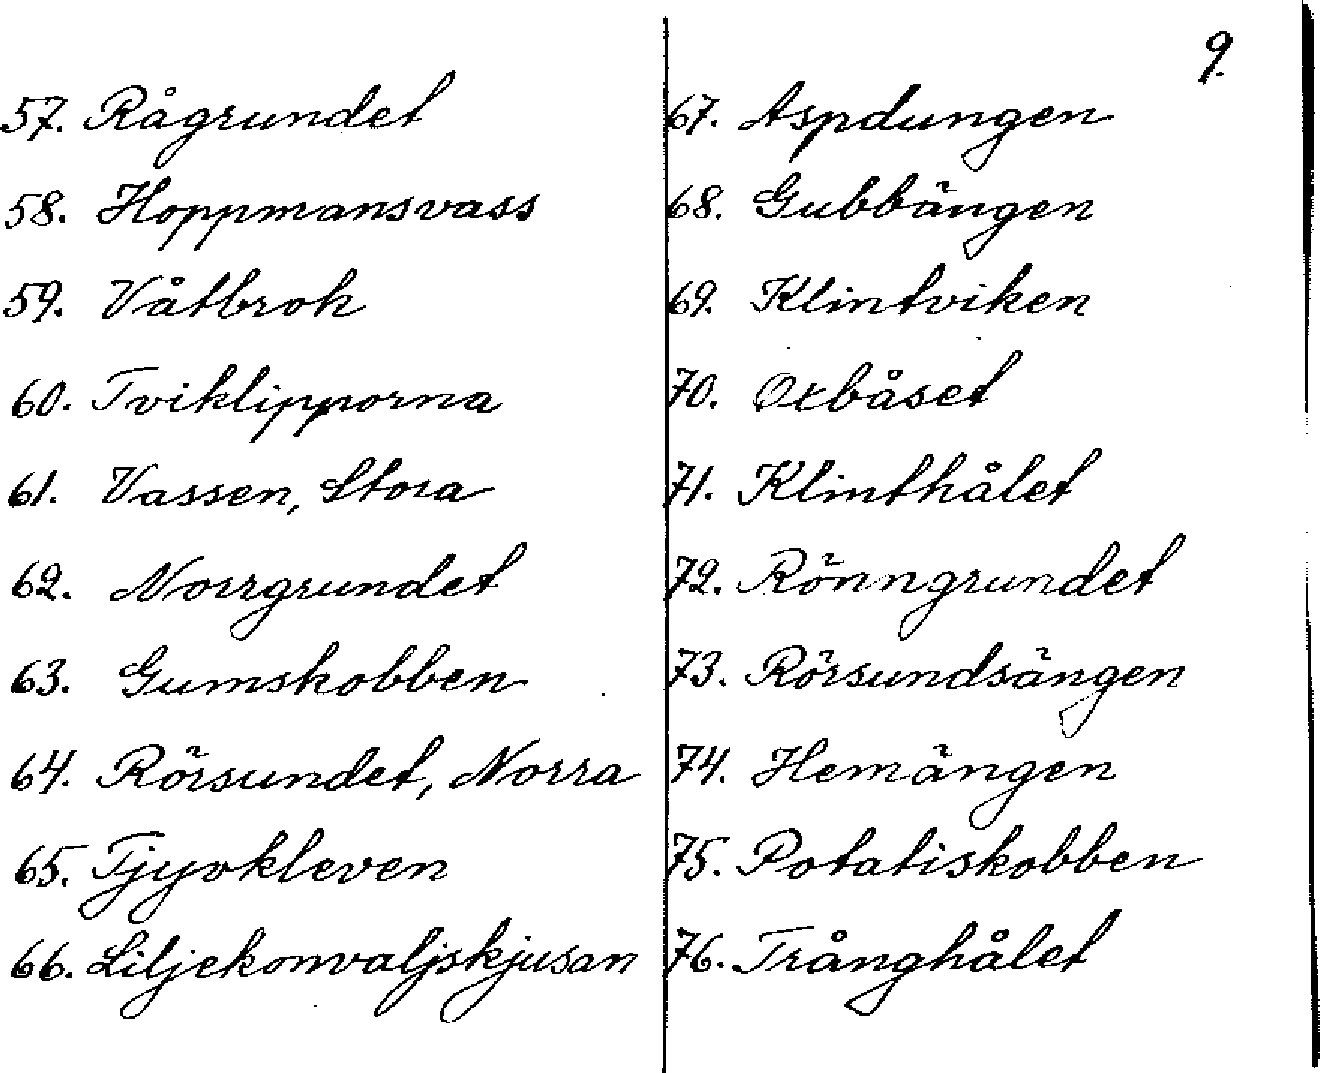 9.
57. Rågrundet
58. Hoppmansvass
59. Våtbrok
60. Tviklipporna
61. Vassen, Stora
62. Norrgrundet
63. Gumskobben
64. Rörsundet, Norra
65. Tjyvkleven
66. Liljekonvaljskjusan
67. Aspdungen
68. Gubbängen
69. Klintviken
70. Oxbåset
71. Klinthålet
72. Rönngrundet
73. Rörsundsängen
74. Hemängen
75. Potatiskobben
76. Trånghålet